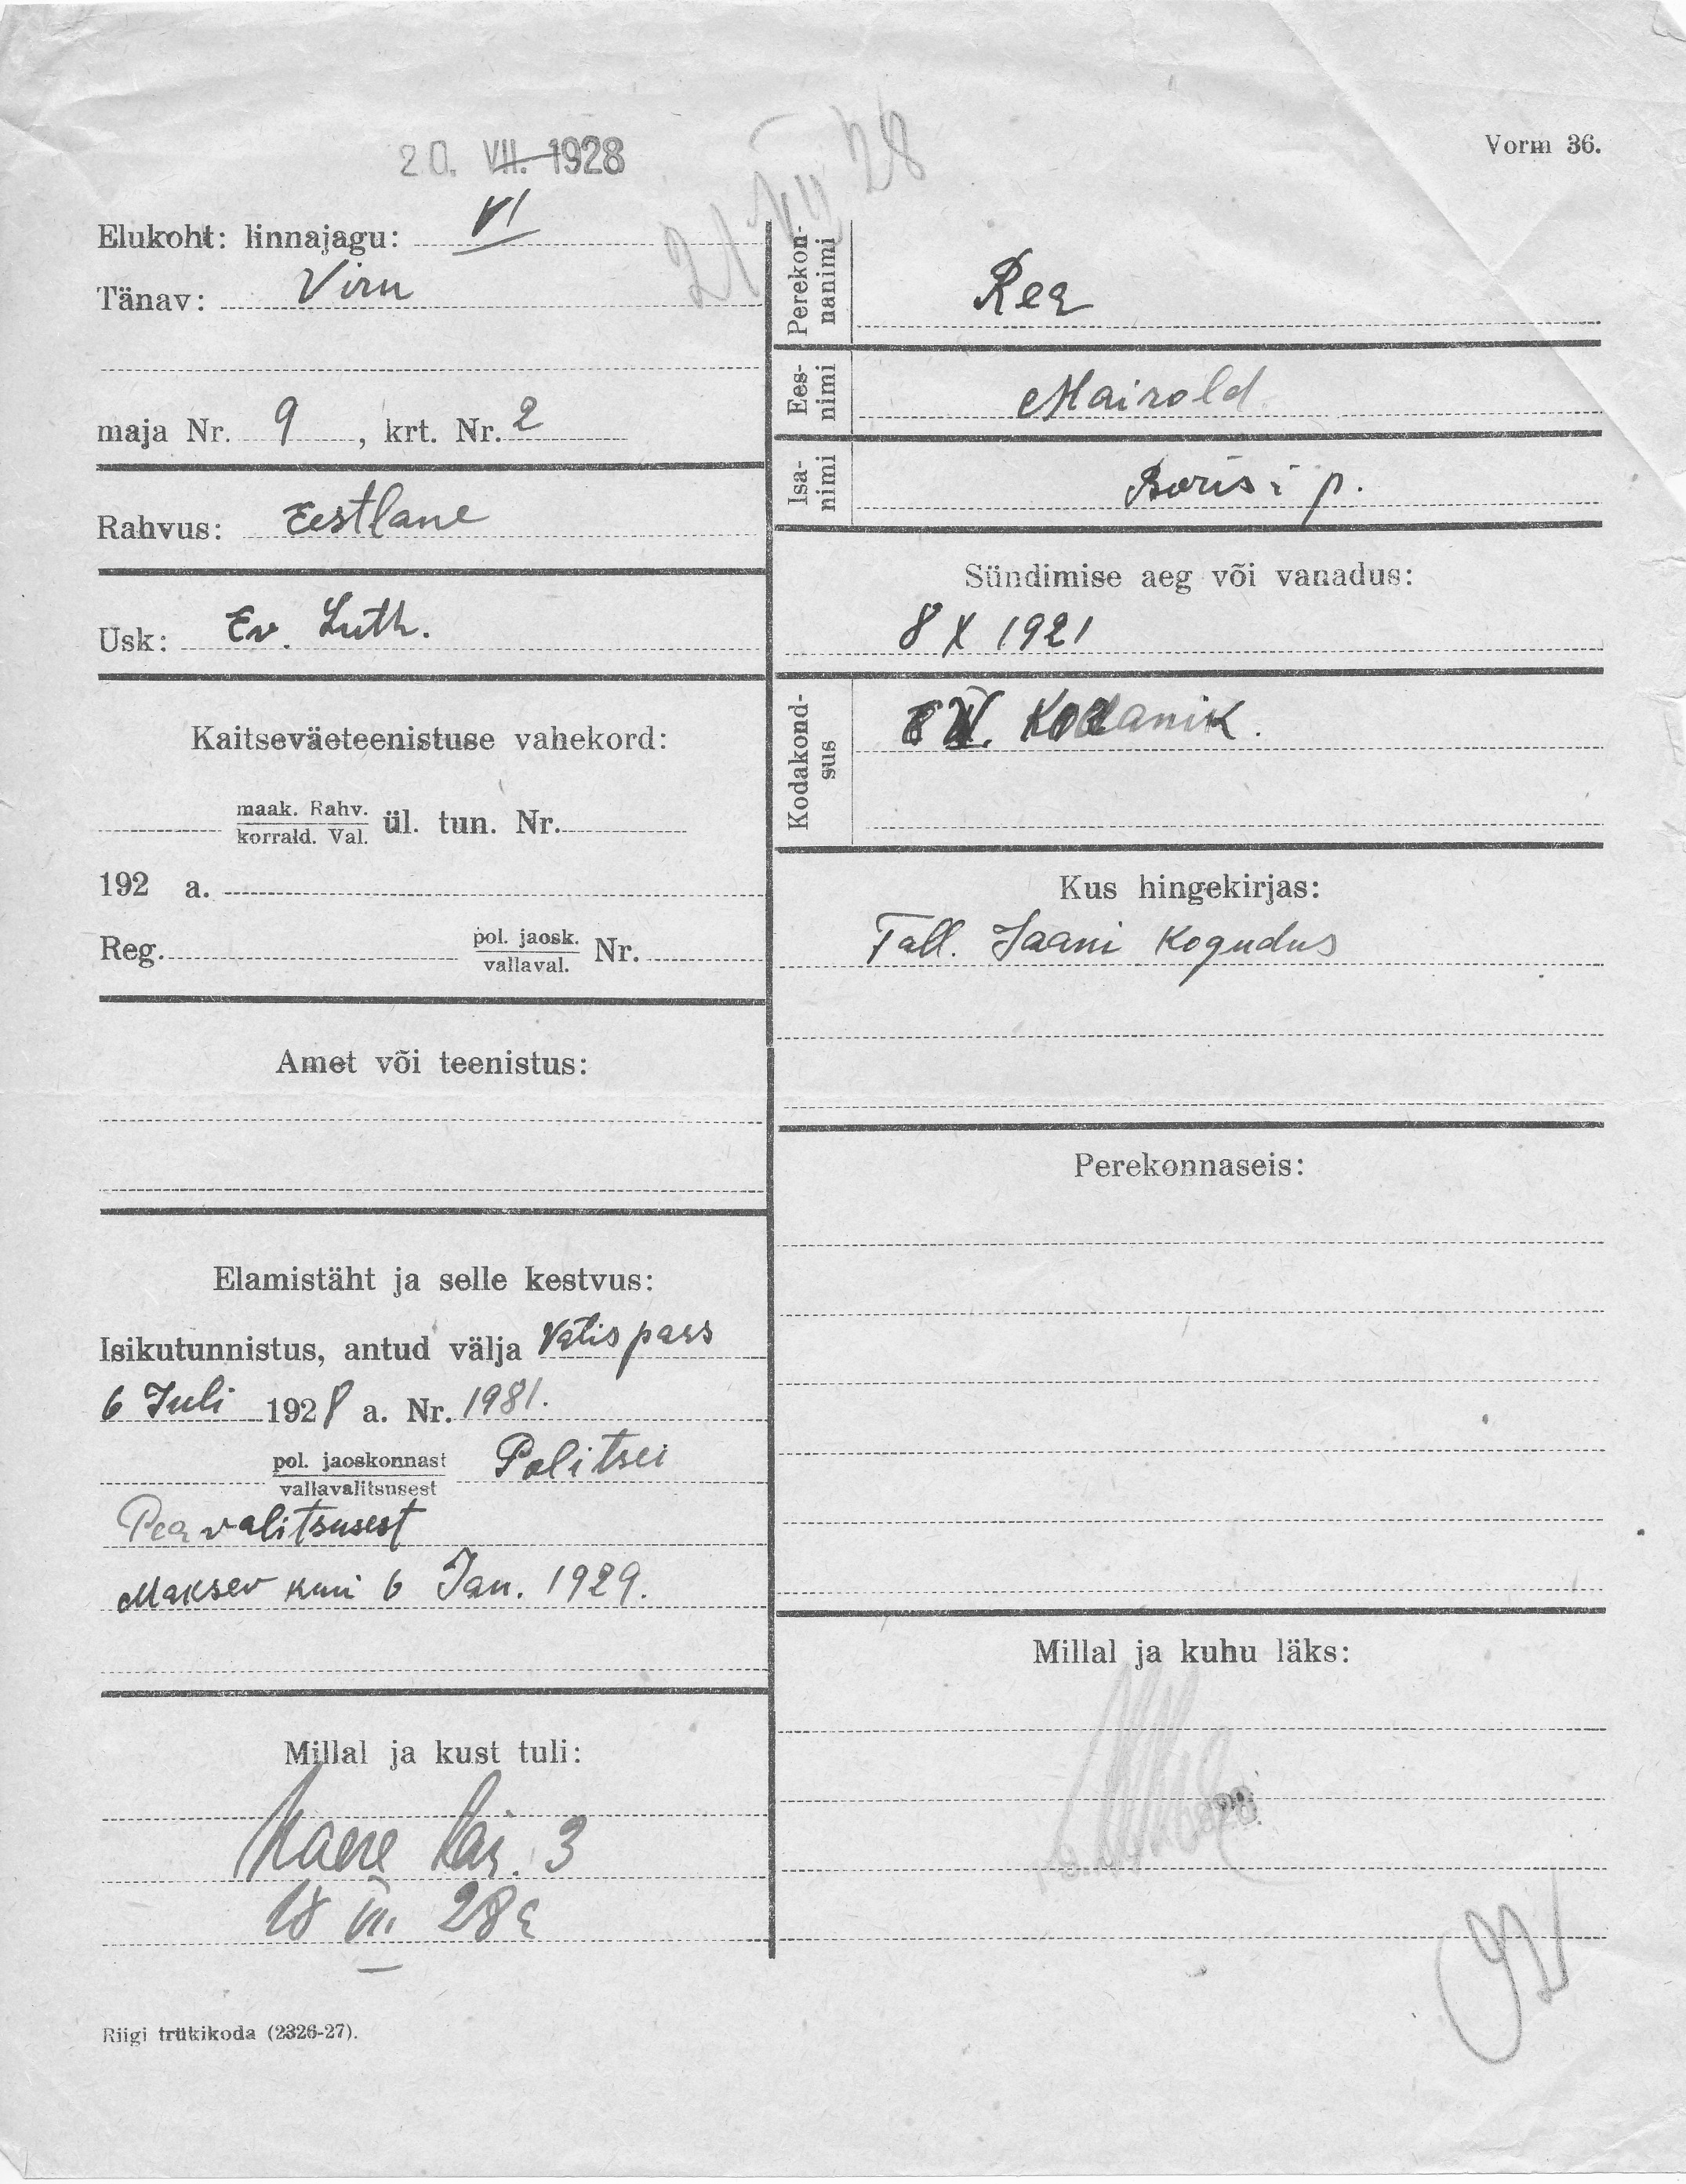 20. VII. 1928
21 VII 28
Vorm 36.
Elukoht: linnajagu: VI
Tänav: Viru
maja Nr. 9, krt. Nr. 2
Rahvus: Eestlane
Usk: Ev. Luth.
Kaitseväeteenistuse vahekord:
maak. Rahv.
korrald. Val. ül. tun. Nr.
192 a.
Reg. pol. jaosk.
vallaval. Nr.
Amet või teenistus:
Elamistäht ja selle kestvus:
Isikutunnistus, antud välja Välispass
6 Juli 1928 a. Nr. 1981.
pol. jaoskonnast
vallavalitsusest Politsei
Peavalitsusest
Maksev kuni 6 Jan. 1929.
Millal ja kust tuli:
3
18 VII. 28a
Perekon-
nanimi Rea
Ees-
nimi Mairold
Isa-
nimi Boris i p.
Sündimise aeg või vanadus:
8 X 1921
Kodakond-
sus Kodanik.
Kus hingekirjas:
Tall. Jaani Kogudus
Perekonnaseis:
Millal ja kuhu läks:
Riigi trükikoda (2326-27).